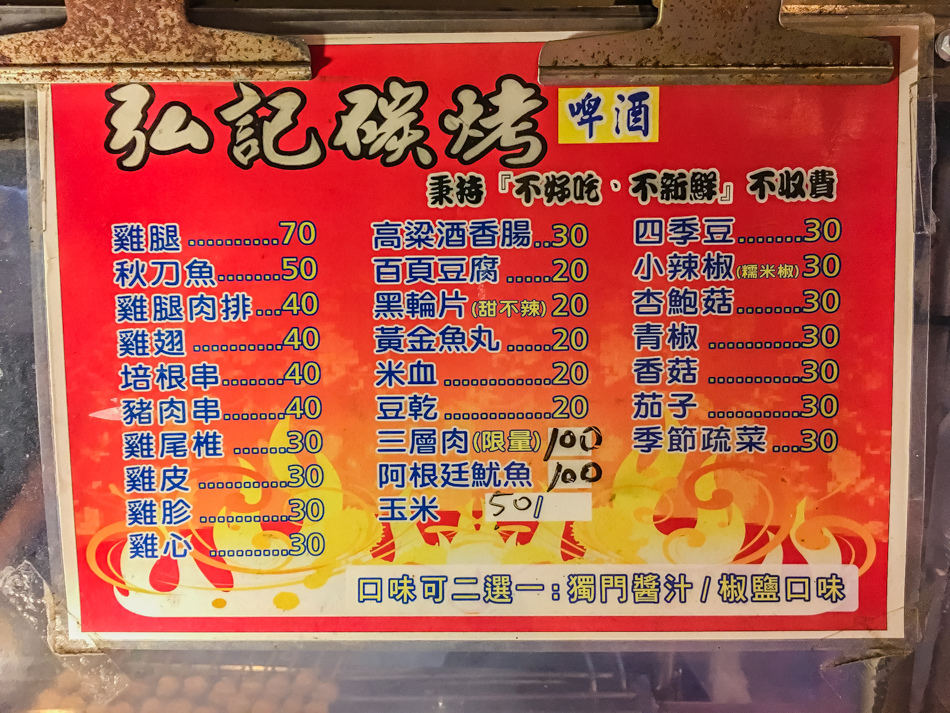 弘記碳烤 啤酒
秉持『不好吃、不新鮮』不收費
雞腿..........70
秋刀魚.......50
雞腿肉排...40
雞翅..........40
培根串.......40
豬肉串.......40
雞尾椎.......30
雞皮..........30
雞胗..........30
雞心..........30
高粱酒香腸..30
百頁豆腐.....20
黑輪片(甜不辣)20
黃金魚丸.....20
米血............20
豆乾............20
三層肉(限量)100
阿根廷魷魚 100
玉米 50/
四季豆.......30
小辣椒(糯米椒)30
杏鮑菇.......30
青椒..........30
香菇..........30
茄子..........30
季節疏菜...30
口味可二選一:獨門醬汁/椒鹽口味